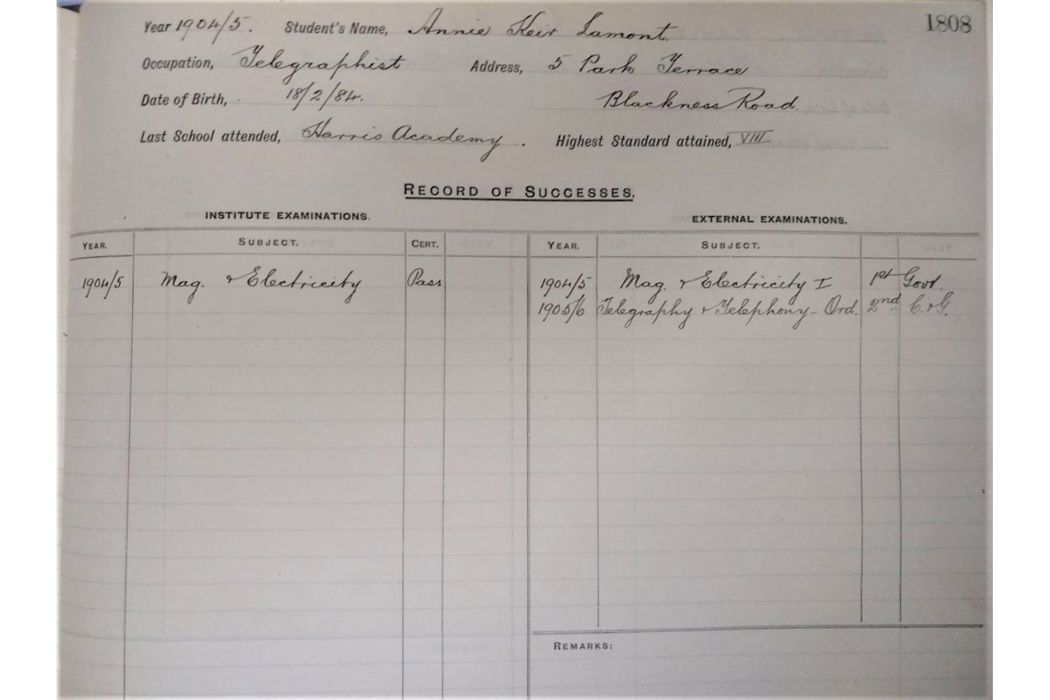 Year 1904/5. Student's Name, Annie Keir Lamont. 1808
Occupation, Telegraphist Address, 5 Park Terrace
Date of Birth, 18/2/84. Blackness Road
Last School attended, Harris Academy. Highest Standard attained, VIII
RECORD OF SUCCESSES.
INSTITUTE EXAMINATIONS. EXTERNAL EXAMINATIONS.
YEAR. SUBJECT. CERT. YEAR. SUBJECT.
1904/5 Mag. & Electricity Pass 1904/5 Mag. & Electricity I 1st Govt.
1905/6 Telegraphy & Telephony - Ord. 2nd C. & G.
REMARKS: